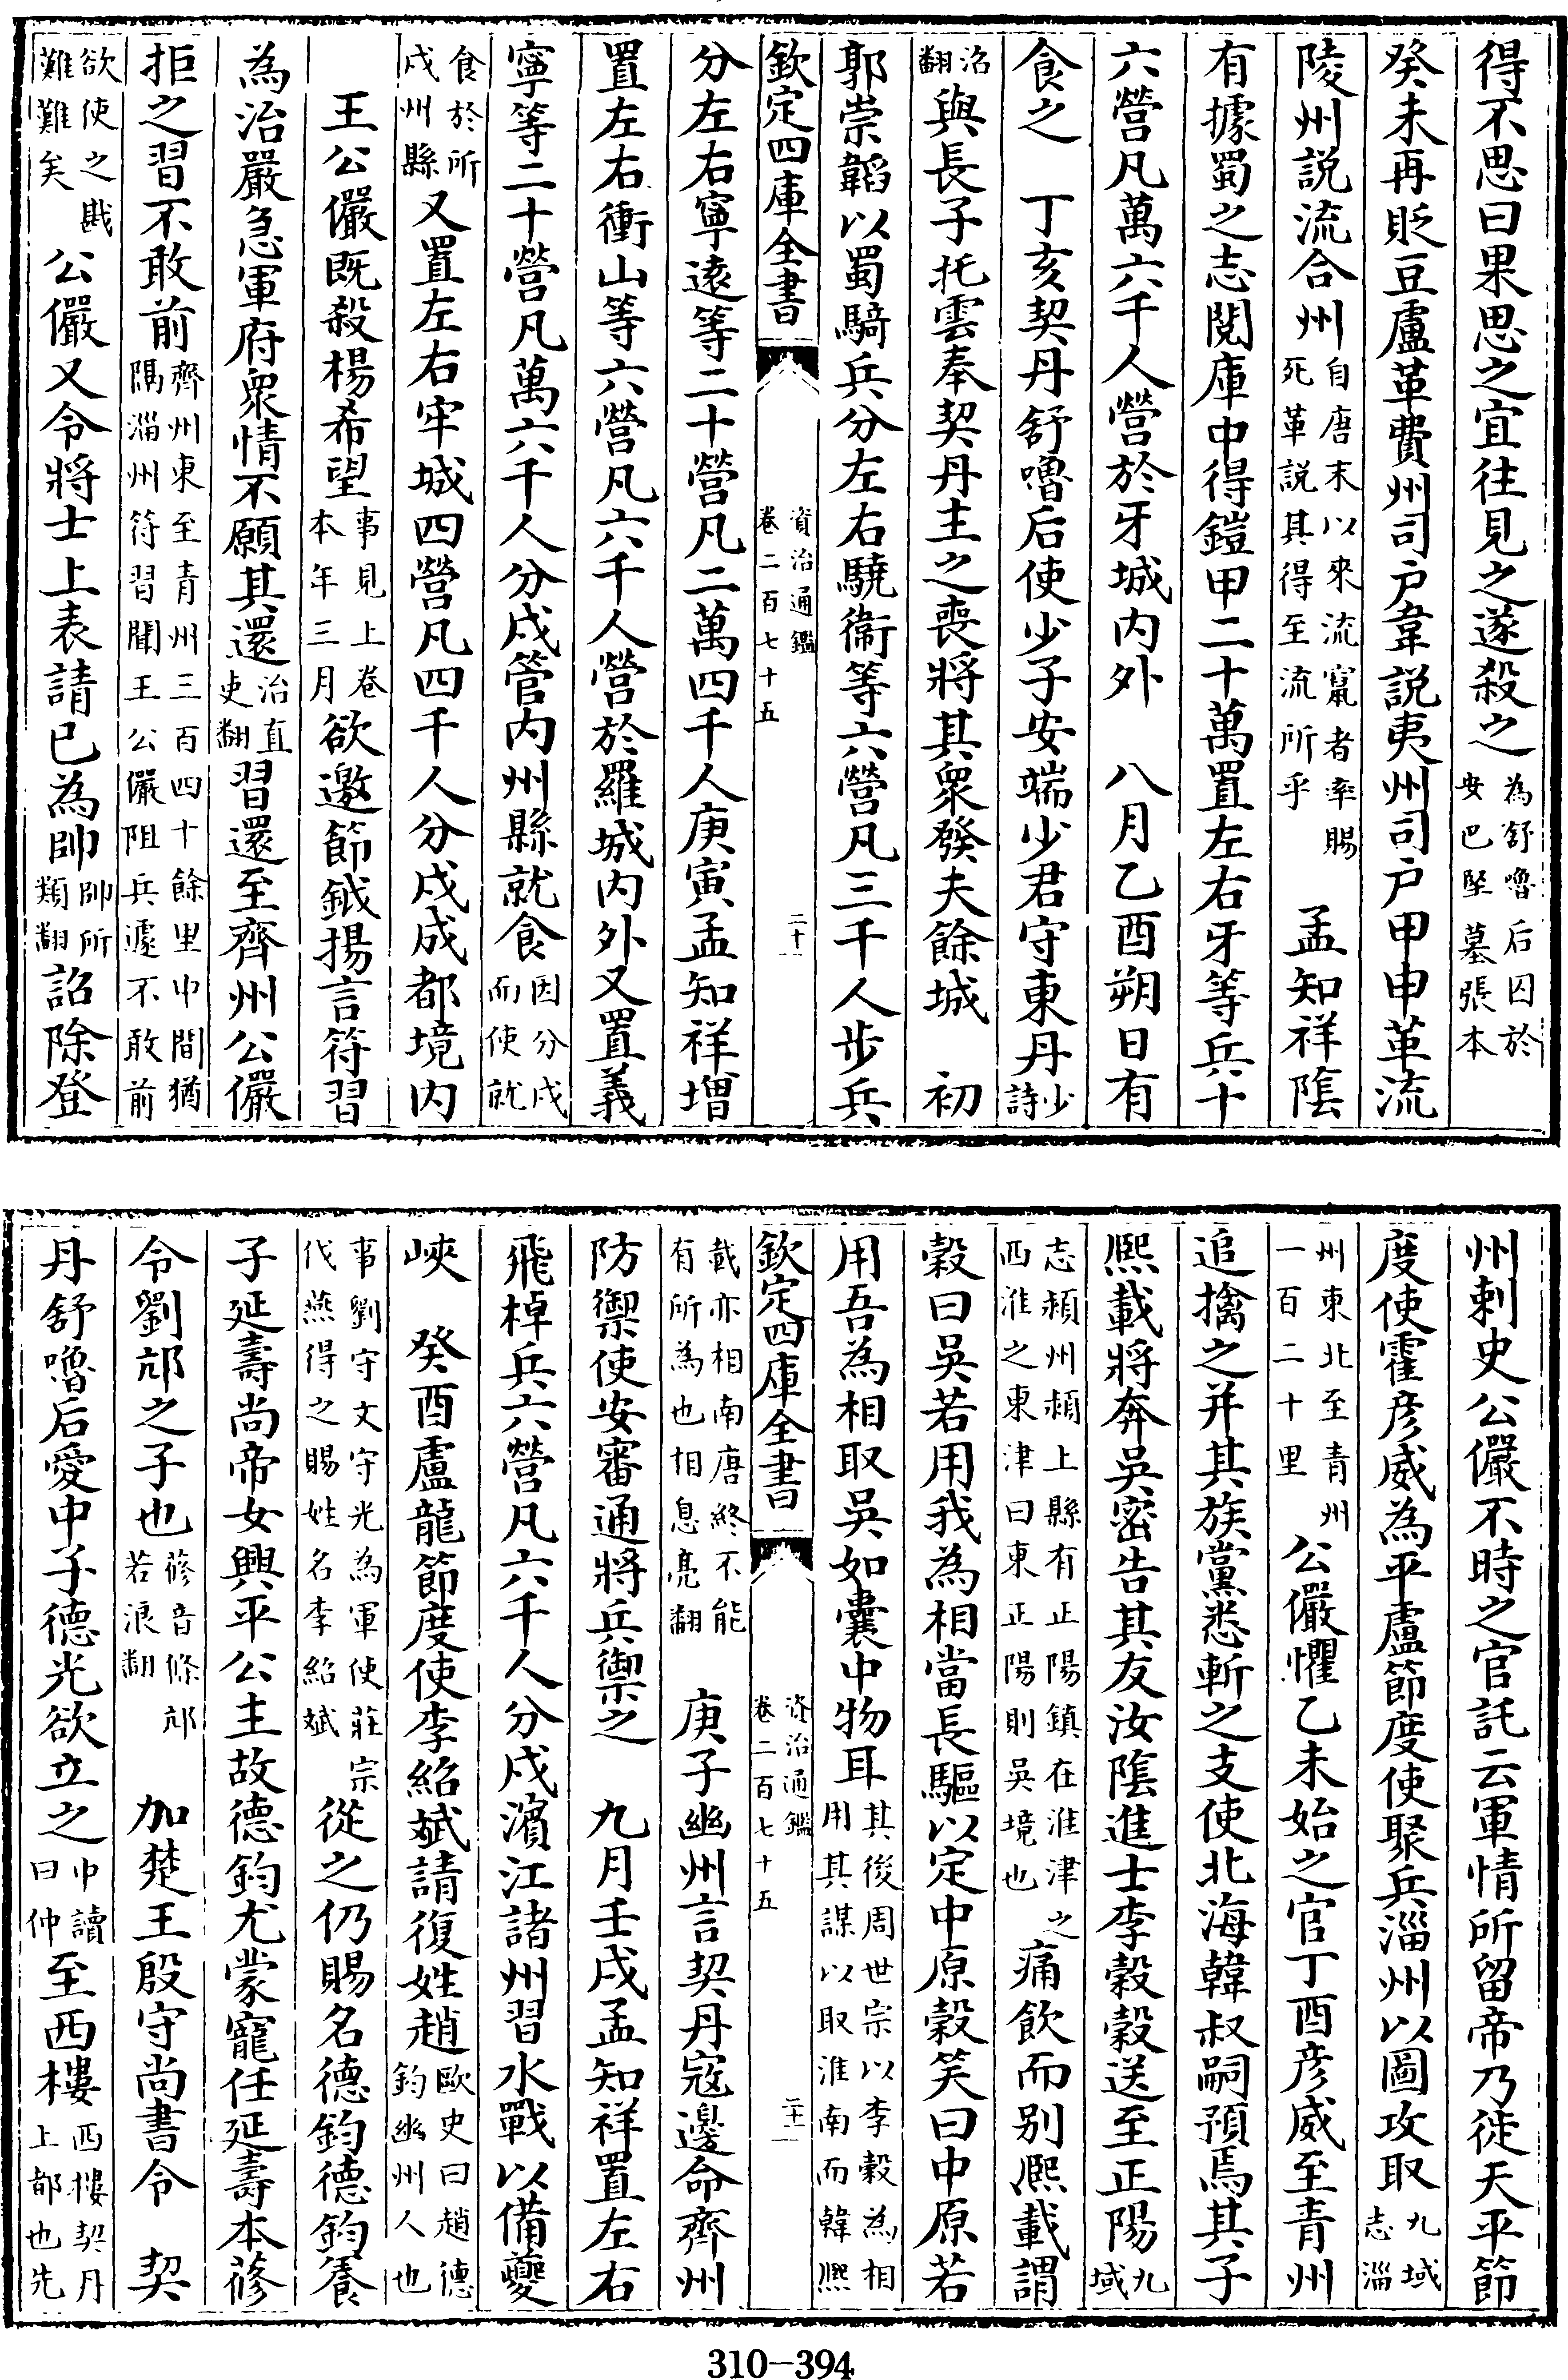 得不思曰果思之宜往見之遂殺之為舒嚕后囚於安巴堅墓張本
癸未再貶豆盧革費州司户韋説夷州司户甲申革流
陵州説流合州自唐末以來流竄者率賜死革説其得至流所乎　孟知祥隂
有據蜀之志閲庫中得鎧甲二十萬置左右牙等兵十
六營凡萬六千人營於牙城内外　八月乙酉朔日有
食之　丁亥契丹舒嚕后使少子安端少君守東丹少詩
翻與長子托雲奉契丹主之喪將其衆發夫餘城　初
郭崇韜以蜀騎兵分左右驍衞等六營凡三千人步兵
欽定四庫全書　資治通鑑卷二百七十五　二十
分左右寧遠等二十營凡二萬四千人庚寅孟知祥增
置左右衝山等六營凡六千人營於羅城内外又置義
寧等二十營凡萬六千人分戍管内州縣就食因分戍而使就
食於所戍州縣又置左右牢城四營凡四千人分戍成都境内
王公儼既殺楊希望事見上卷本年三月欲邀節鉞揚言符習
為治嚴急軍府衆情不願其還治直吏翻習還至齊州公儼
拒之習不敢前齊州東至青州三百四十餘里中間猶隅淄州符習聞王公儼阻兵遽不敢前
欲使之戡難難矣公儼又令將士上表請已為帥帥所類翻詔除登
州刺史公儼不時之官託云軍情所留帝乃徙天平節
度使霍彦威為平盧節度使聚兵淄州以圖攻取九域志淄
州東北至青州一百二十里公儼懼乙未始之官丁酉彦威至青州
追擒之并其族黨悉斬之支使北海韓叔嗣預焉其子
熙載將奔吳密告其友汝隂進士李穀穀送至正陽九域
志潁州潁上縣有正陽鎮在淮津之西淮之東津曰東正陽則吳境也痛飲而别熙載謂
穀曰吳若用我為相當長驅以定中原穀笑曰中原若
用吾為相取吳如囊中物耳其後周世宗以李穀為相用其謀以取淮南而韓熙
欽定四庫全書　資治通鑑卷二百七十五　二十一
載亦相南唐終不能有所為也相息亮翻　庚子幽州言契丹宼邊命齊州
防禦使安審通將兵禦之　九月壬戌孟知祥置左右
飛棹兵六營凡六千人分戍濱江諸州習水戰以備夔
峽　癸酉盧龍節度使李紹斌請復姓趙歐史曰趙德鈞幽州人也
事劉守文守光為軍使莊宗伐燕得之賜姓名李紹斌從之仍賜名德鈞德鈞養
子延壽尚帝女興平公主故德鈞尤蒙寵任延壽本蓨
令劉邟之子也蓨音條邟若浪翻　加楚王殷守尚書令　契
丹舒嚕后愛中子德光欲立之中讀曰仲至西樓西樓契丹上都也先
310-394